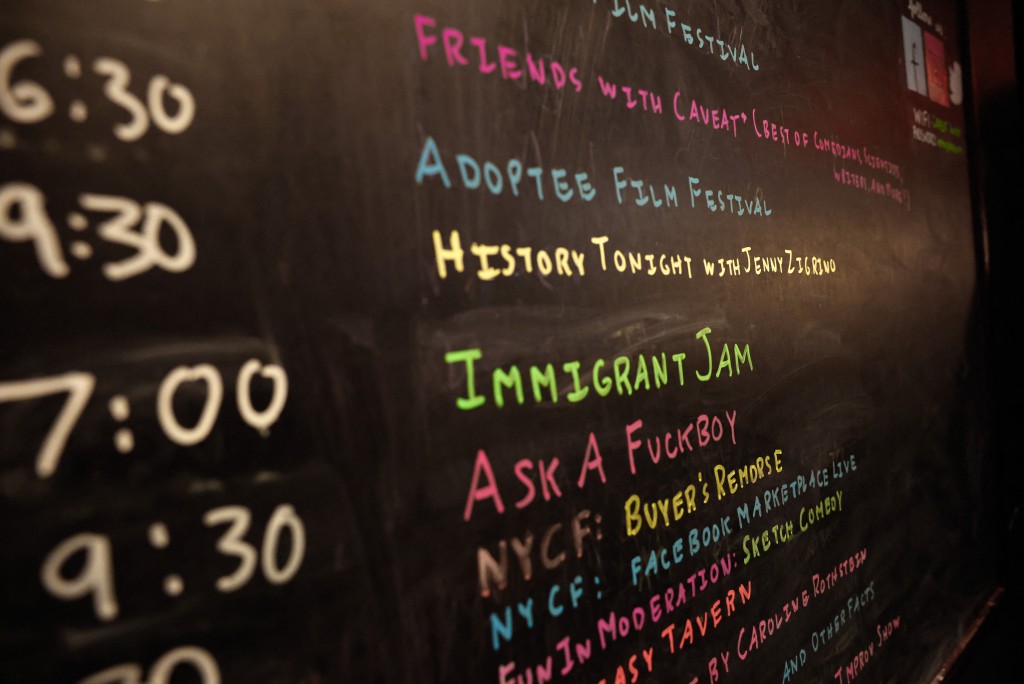 Film Festival
6:30 Friends with Caveat* (Best of Comedians, Scientists,
Writers, and More*)
9:30 Adoptee Film Festival
History Tonight with Jenny Zigrino
7:00 Immigrant Jam
Ask A Fuckboy
9:30 NYCF: Buyer's Remorse
NYCF: Facebook Marketplace Live
Fun In Moderation: Sketch Comedy
Tavern
By Caroline Rothstein
and Other Facts
Improv Show
Follow us
WiFi: